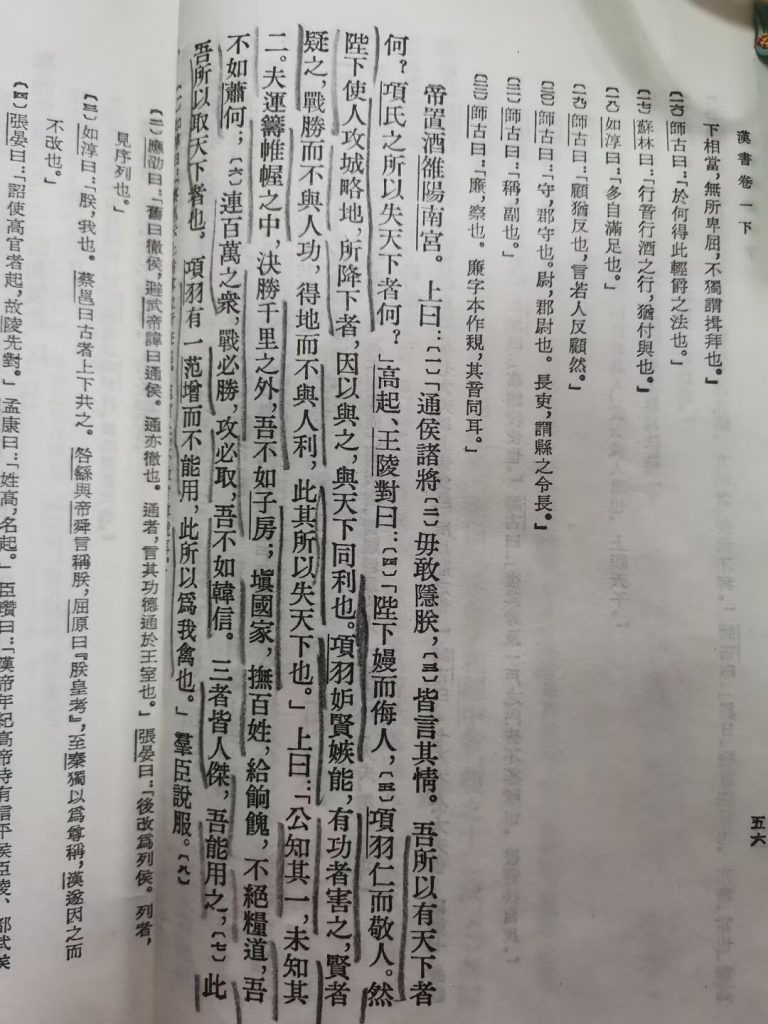 漢書卷一下
五六
下相當,無所卑屈,不獨謂揖拜也。」
〔一六〕師古曰:「於何得此輕爵之法也。」
〔一七〕蘇林曰:「行音行酒之行,猶付與也。」
〔一八〕如淳曰:「多自滿足也。」
〔一九〕師古曰:「顧猶反也,言若人反顧然。」
〔二〇〕師古曰:「守,郡守也。尉,郡尉也。長吏,謂縣之令長。」
〔二一〕師古曰:「稱,副也。」
〔二二〕師古曰:「廉,察也。廉字本作覝,其音同耳。」
帝置酒雒陽南宮。上曰:〔一〕「通侯諸將〔二〕毋敢隱朕,〔三〕皆言其情。吾所以有天下者
何?項氏之所以失天下者何?」高起、王陵對曰:〔四〕「陛下嫚而侮人,〔五〕項羽仁而敬人。然
陛下使人攻城略地,所降下者,因以與之,與天下同利也。項羽妒賢嫉能,有功者害之,賢者
疑之,戰勝而不與人功,得地而不與人利,此其所以失天下也。」上曰:「公知其一,未知其
二。夫運籌帷幄之中,決勝千里之外,吾不如子房;塡國家,撫百姓,給餉餽,不絕糧道,吾
不如蕭何;〔六〕連百萬之衆,戰必勝,攻必取,吾不如韓信。三者皆人傑,吾能用之,〔七〕此
吾所以取天下者也。項羽有一范增而不能用,此所以爲我禽也。」羣臣說服。〔八〕
〔二〕應劭曰:「舊曰徹侯,避武帝諱曰通侯。通亦徹也。通者,言其功德通於王室也。」張晏曰:「後改爲列侯。列者,
見序列也。」
〔三〕如淳曰:「朕,我也。蔡邕曰古者上下共之。咎繇與帝舜言稱朕,屈原曰『朕皇考』,至秦獨以爲尊稱,漢遂因之而
不改也。」
〔四〕張晏曰:「詔使高官者起,故陵先對。」孟康曰:「姓高,名起。」臣瓚曰:「漢帝年紀高帝時有信平侯臣陵、都武侯